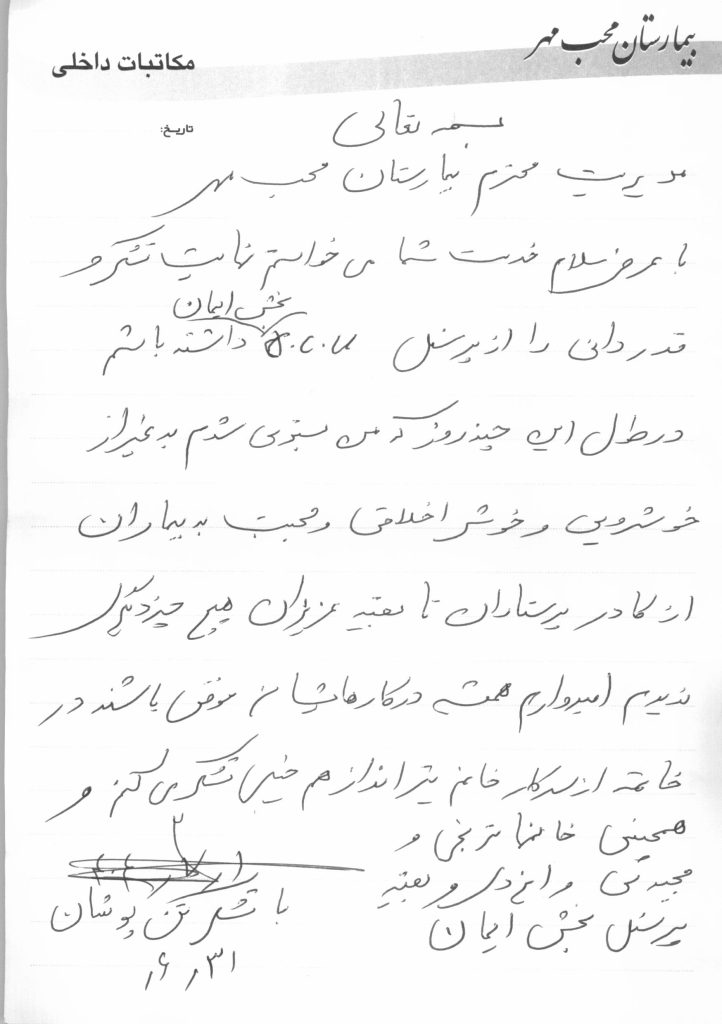 بیمارستان محب مهر
مکاتبات داخلی
تاریخ:
بسمه تعالی
مدیریت محترم بیمارستان محب مهر
با عرض سلام خدمت شما می خواستم نهایت تشکر و
بخش ایمان
قدردانی را از پرسنل داشته باشم
در طول این چند روز که من بستری شدم به غیر از
خوشرویی و خوش اخلاقی و محبت به بیماران
از کادر پرستاران تا بقیه عزیزان هیچ چیز دیگری
ندیدم امیدوارم همیشه در کارهایشان موفق باشند در
خاتمه از سرکار خانم تیرانداز هم خیلی تشکر می کنم و
همچنین خانمها ترنجی و
و بقیه
پرسنل بخش ایمان
با تشکر
۳۱